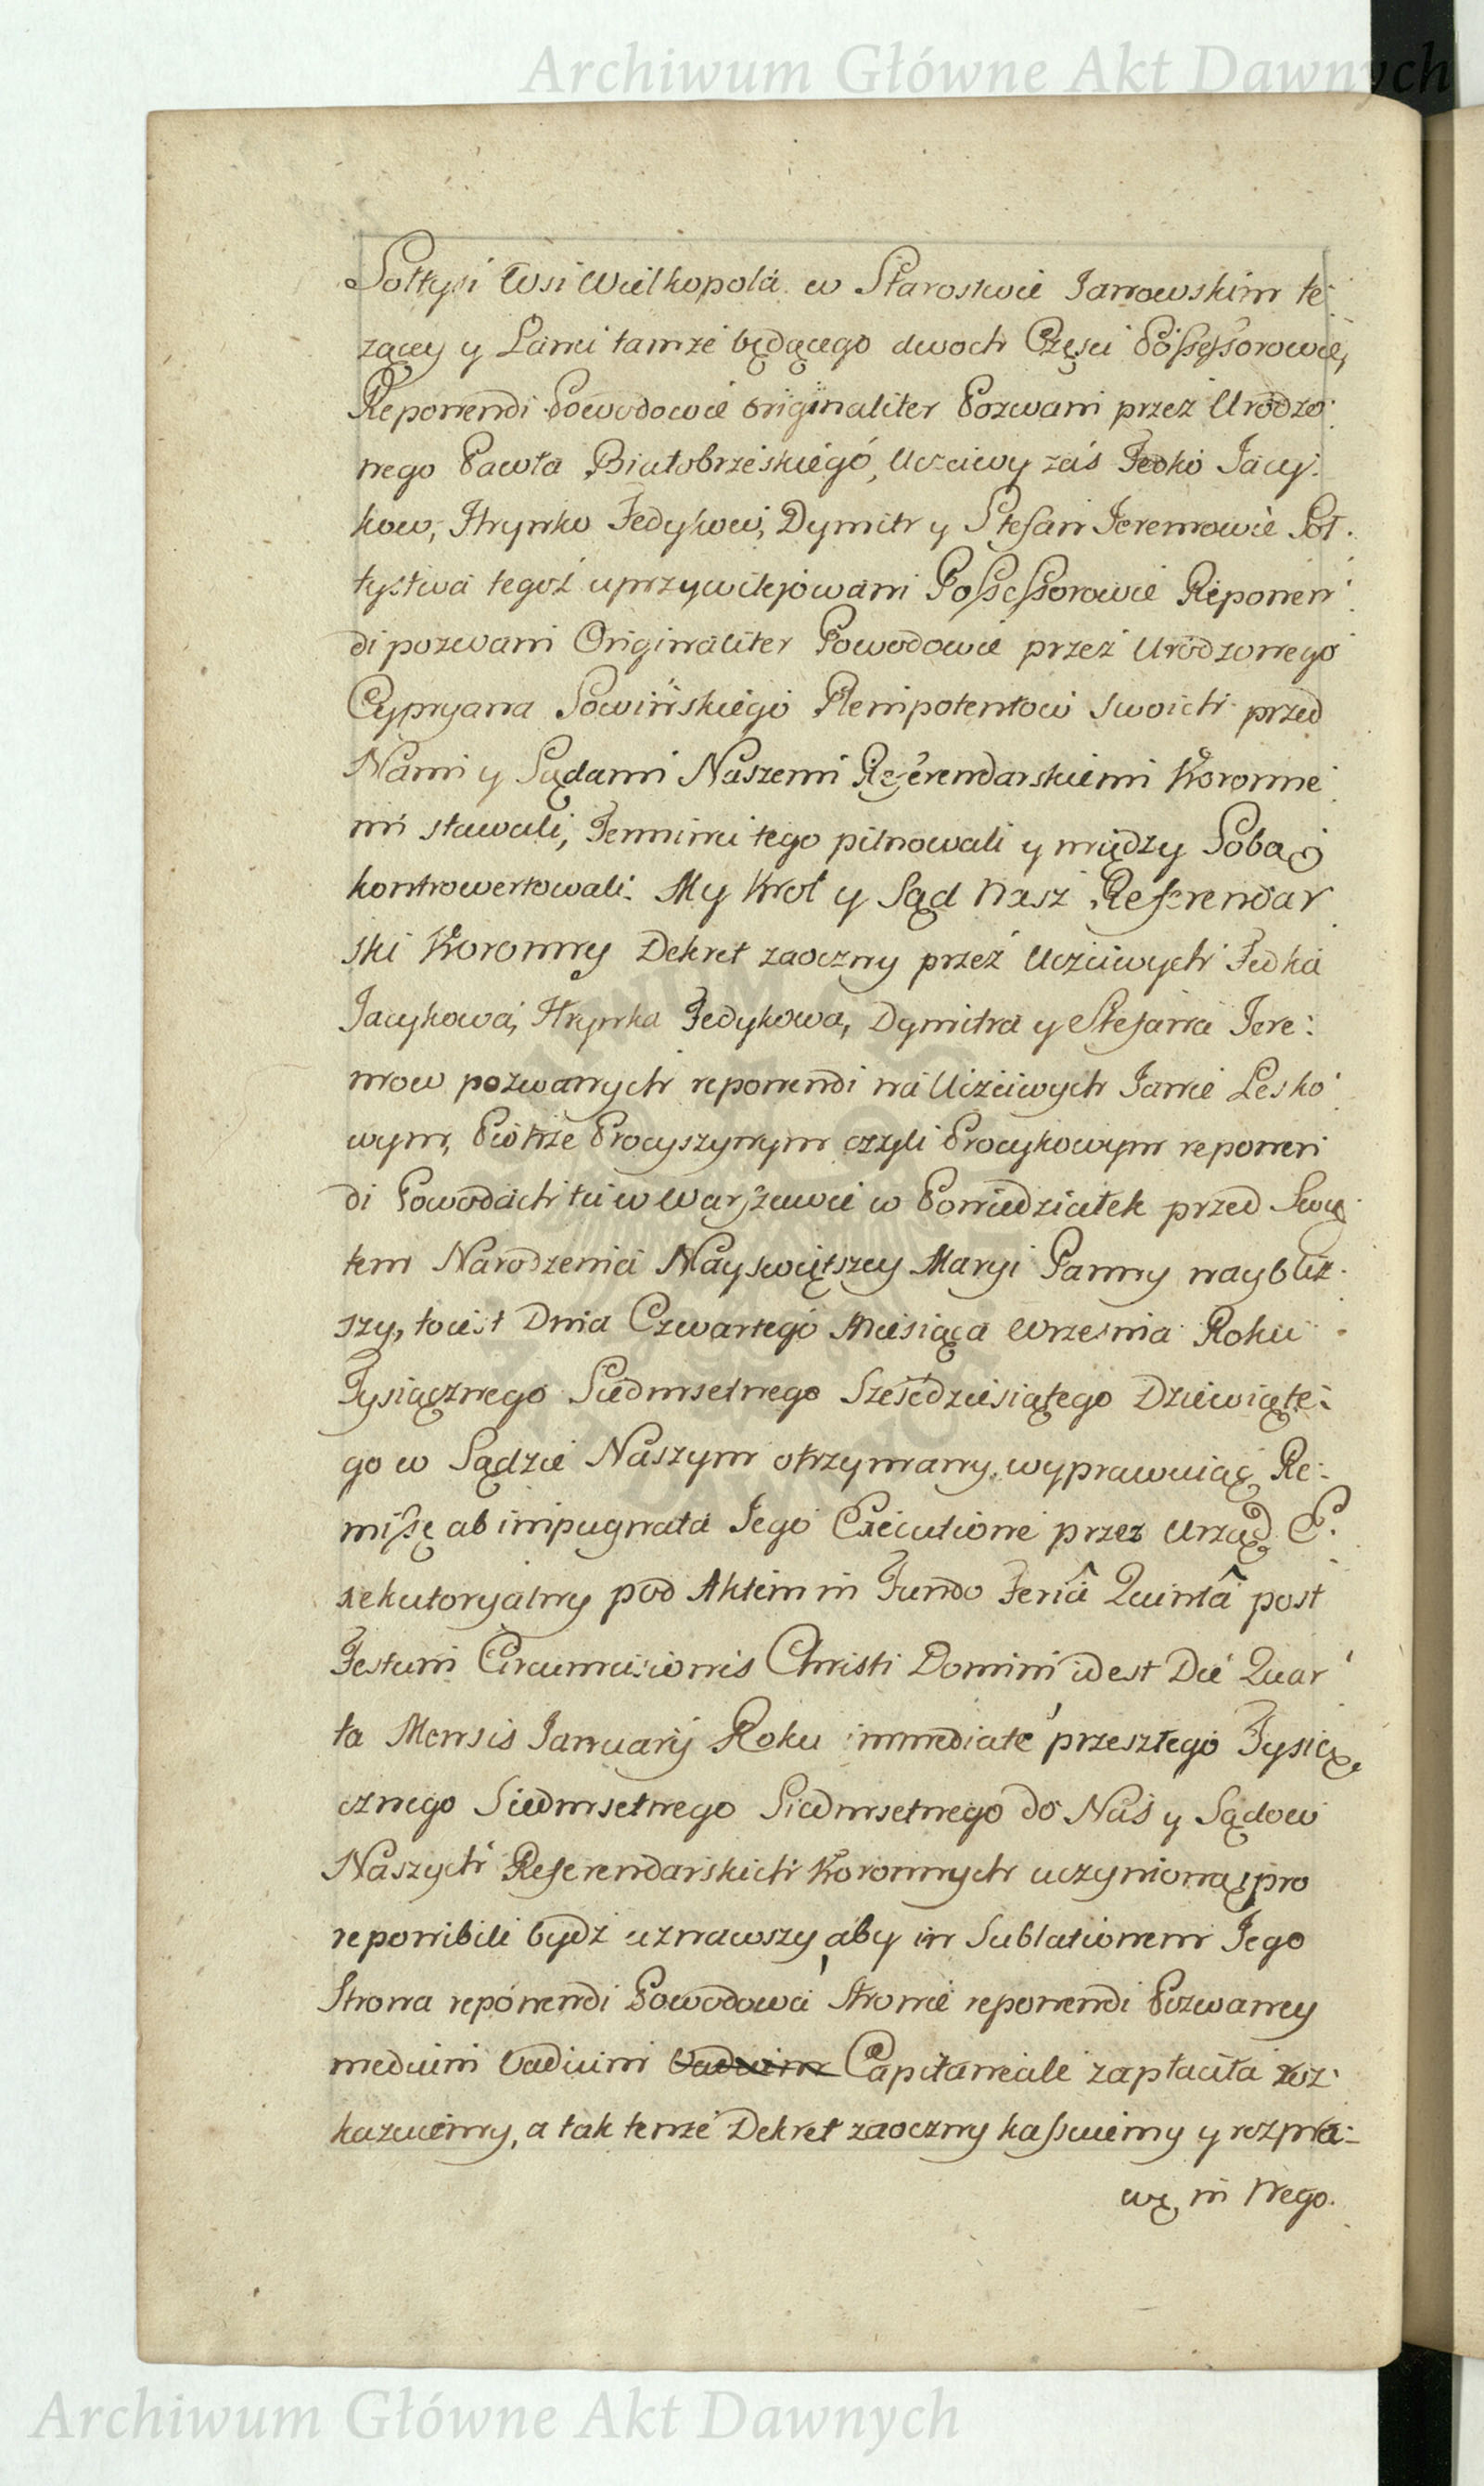 Archiwum Główne Akt Dawnych
Sołtysi Wsi Wielkopola w Starostwie Janowskim le:
zącey y Łanu tamże będącego dwoch Częsci Possessorowie,
Reponendi Powodowie originaliter Pozwani przez Urodzo:
nego Pawła Białobrzeskiego, Uczciwy zaś Fedko Jacy:
kow, Hrynko Fedykow, Dymitr y Stefan Jeremowie Soł:
tystwa tegoż uprzywilejowani Possessorowie Reponen:
di pozwani Originaliter Powodowie przez Urodzonego
Cypryana Sowińskiego Plenipotentow swoich przed
Nami y Sądami Naszemi Referendarskiemi Koronne:
mi stawali, Terminu tego pilnowali y między Sobą
kontrowertowali. My Krol y Sąd Nasz Referendar:
ski Koronny Dekret zaoczny przez Uczciwych Fedka
Jacykowa, Hrynka Fedykowa, Dymitra y Stefana Jere:
mow pozwanych reponendi na Uczciwych Janie Lesko:
wym, Piotrze Procyszynym czyli Procykowym reponen
di Powodach tu w Warszawie w Poniedziałek przed Swię:
tem Narodzenia Nayswiętszey Maryi Panny naybliz:
szy, toiest Dnia Czwartego Miesiąca Września Roku
Tysiącznego Siedmsetnego Sześćdziesiątego Dziewiąte:
go w Sądzie Naszym otrzymany, wyprawuiąc Re:
missę ab impugnata Jego Executione przez Urząd E:
xekutoryalny pod Aktem in Fundo Feriâ Quintâ post
Festum Circumcisionis Christi Domini idest Die Quar:
ta Mensis January Roku immediate przeszłego Tysią:
cznego Siedmsetnego Siedmsetnego do Nas y Sądow
Naszych Referendarskich Koronnych uczynioną, pro
reponibili bydź uznawszy, aby in Sublationem Jego
Strona reponendi Powodowa Stronie reponendi Pozwaney
medium Vadium Vadium Capitaneale zapłaciła roz:
kazuiemy, a tak tenże Dekret zaoczny kassuiemy y rozpra:
wę in Nego.
Archiwum Główne Akt Dawnych